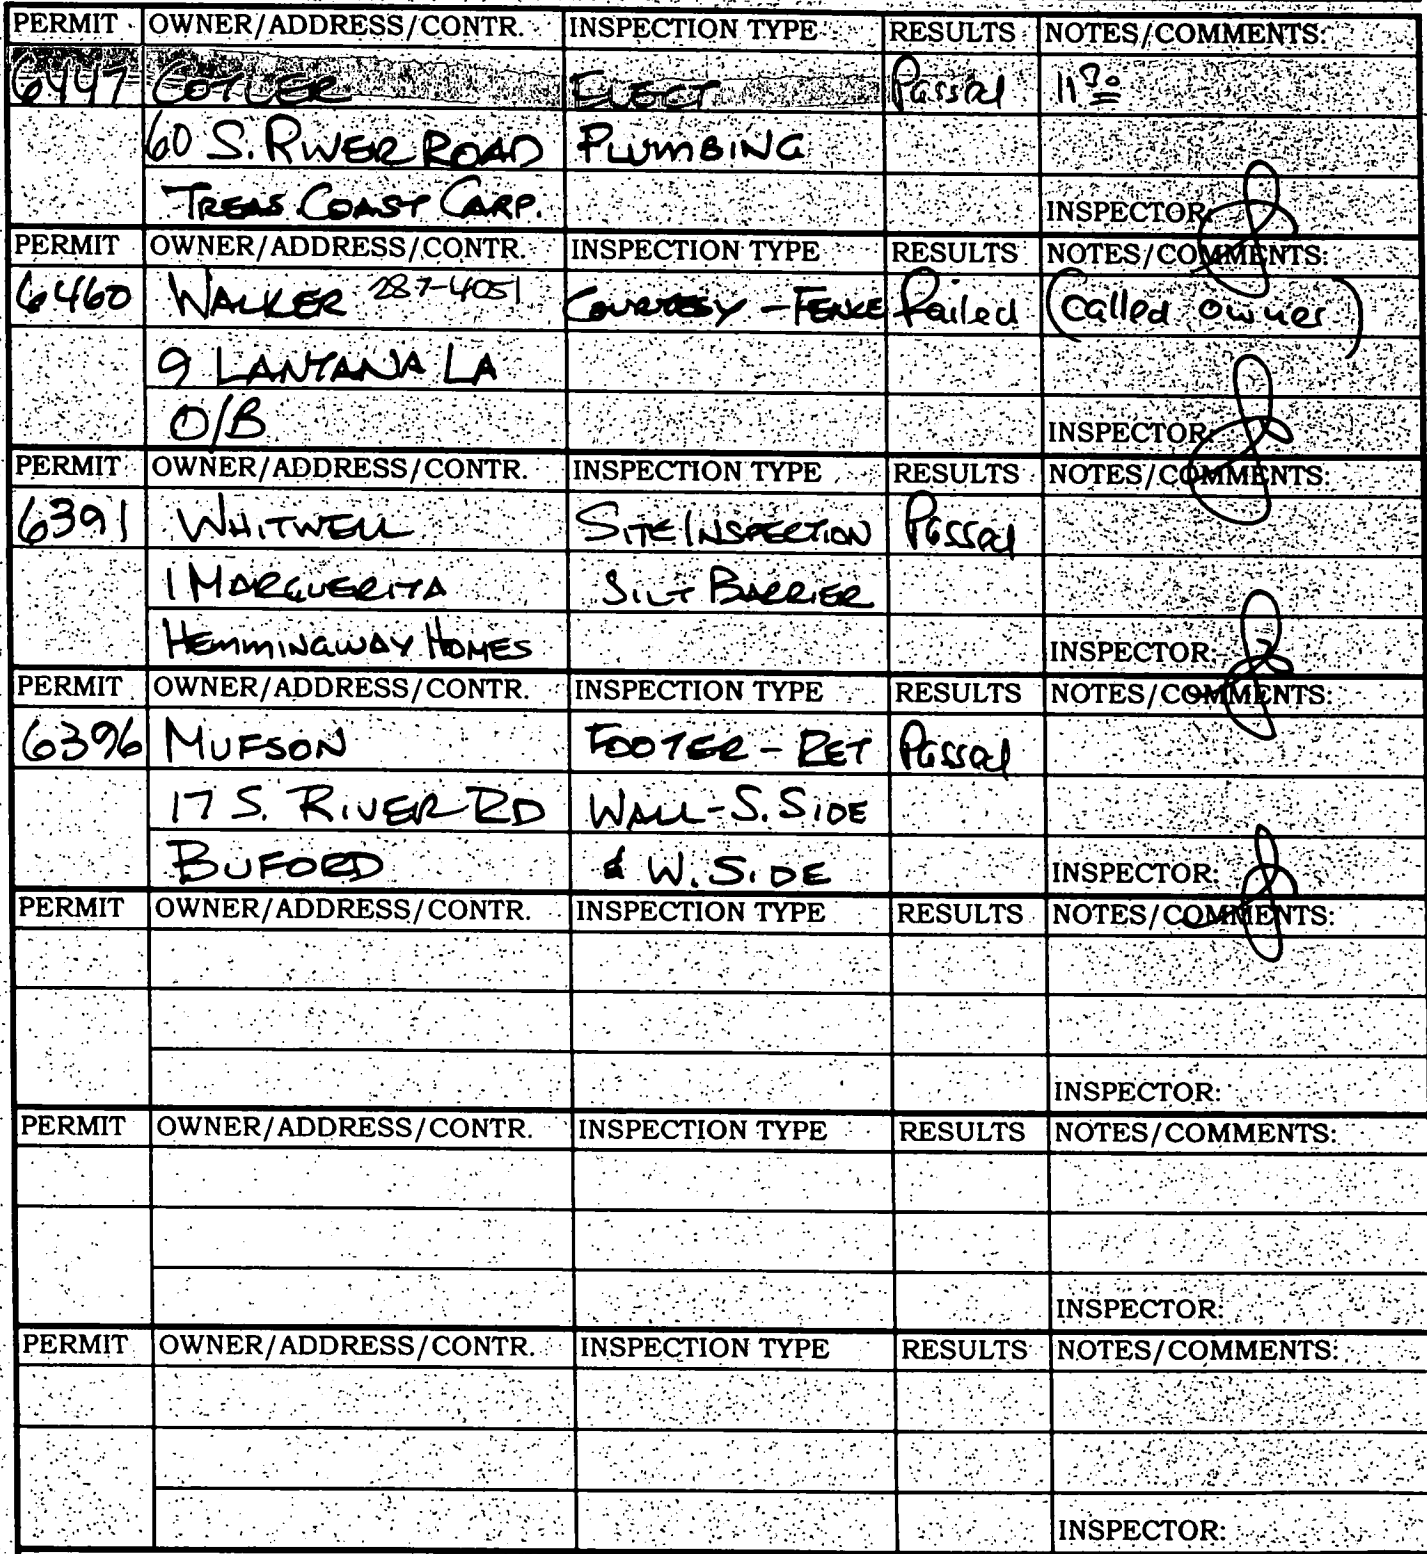 PERMIT OWNER/ADDRESS/CONTR. INSPECTION TYPE RESULTS NOTES/COMMENTS:
6447 COTLER ELECT Passed 11:30
60 S. RIVER ROAD PLUMBING
TREAS COAST CARP. INSPECTOR:
PERMIT OWNER/ADDRESS/CONTR. INSPECTION TYPE RESULTS NOTES/COMMENTS:
6460 WALKER 287-4051 COURTESY - FENCE Failed (Called owner)
9 LANTANA LA
O/B INSPECTOR:
PERMIT OWNER/ADDRESS/CONTR. INSPECTION TYPE RESULTS NOTES/COMMENTS:
6391 WHITWELL SITE INSPECTION Passed
1 MARGUERITA SILT BARRIER
HEMMINGWAY HOMES INSPECTOR:
PERMIT OWNER/ADDRESS/CONTR. INSPECTION TYPE RESULTS NOTES/COMMENTS:
6396 MUFSON FOOTER - RET Passed
17 S. RIVER RD WALL - S. SIDE
BUFORD & W. SIDE INSPECTOR:
PERMIT OWNER/ADDRESS/CONTR. INSPECTION TYPE RESULTS NOTES/COMMENTS:
INSPECTOR:
PERMIT OWNER/ADDRESS/CONTR. INSPECTION TYPE RESULTS NOTES/COMMENTS:
INSPECTOR:
PERMIT OWNER/ADDRESS/CONTR. INSPECTION TYPE RESULTS NOTES/COMMENTS:
INSPECTOR: